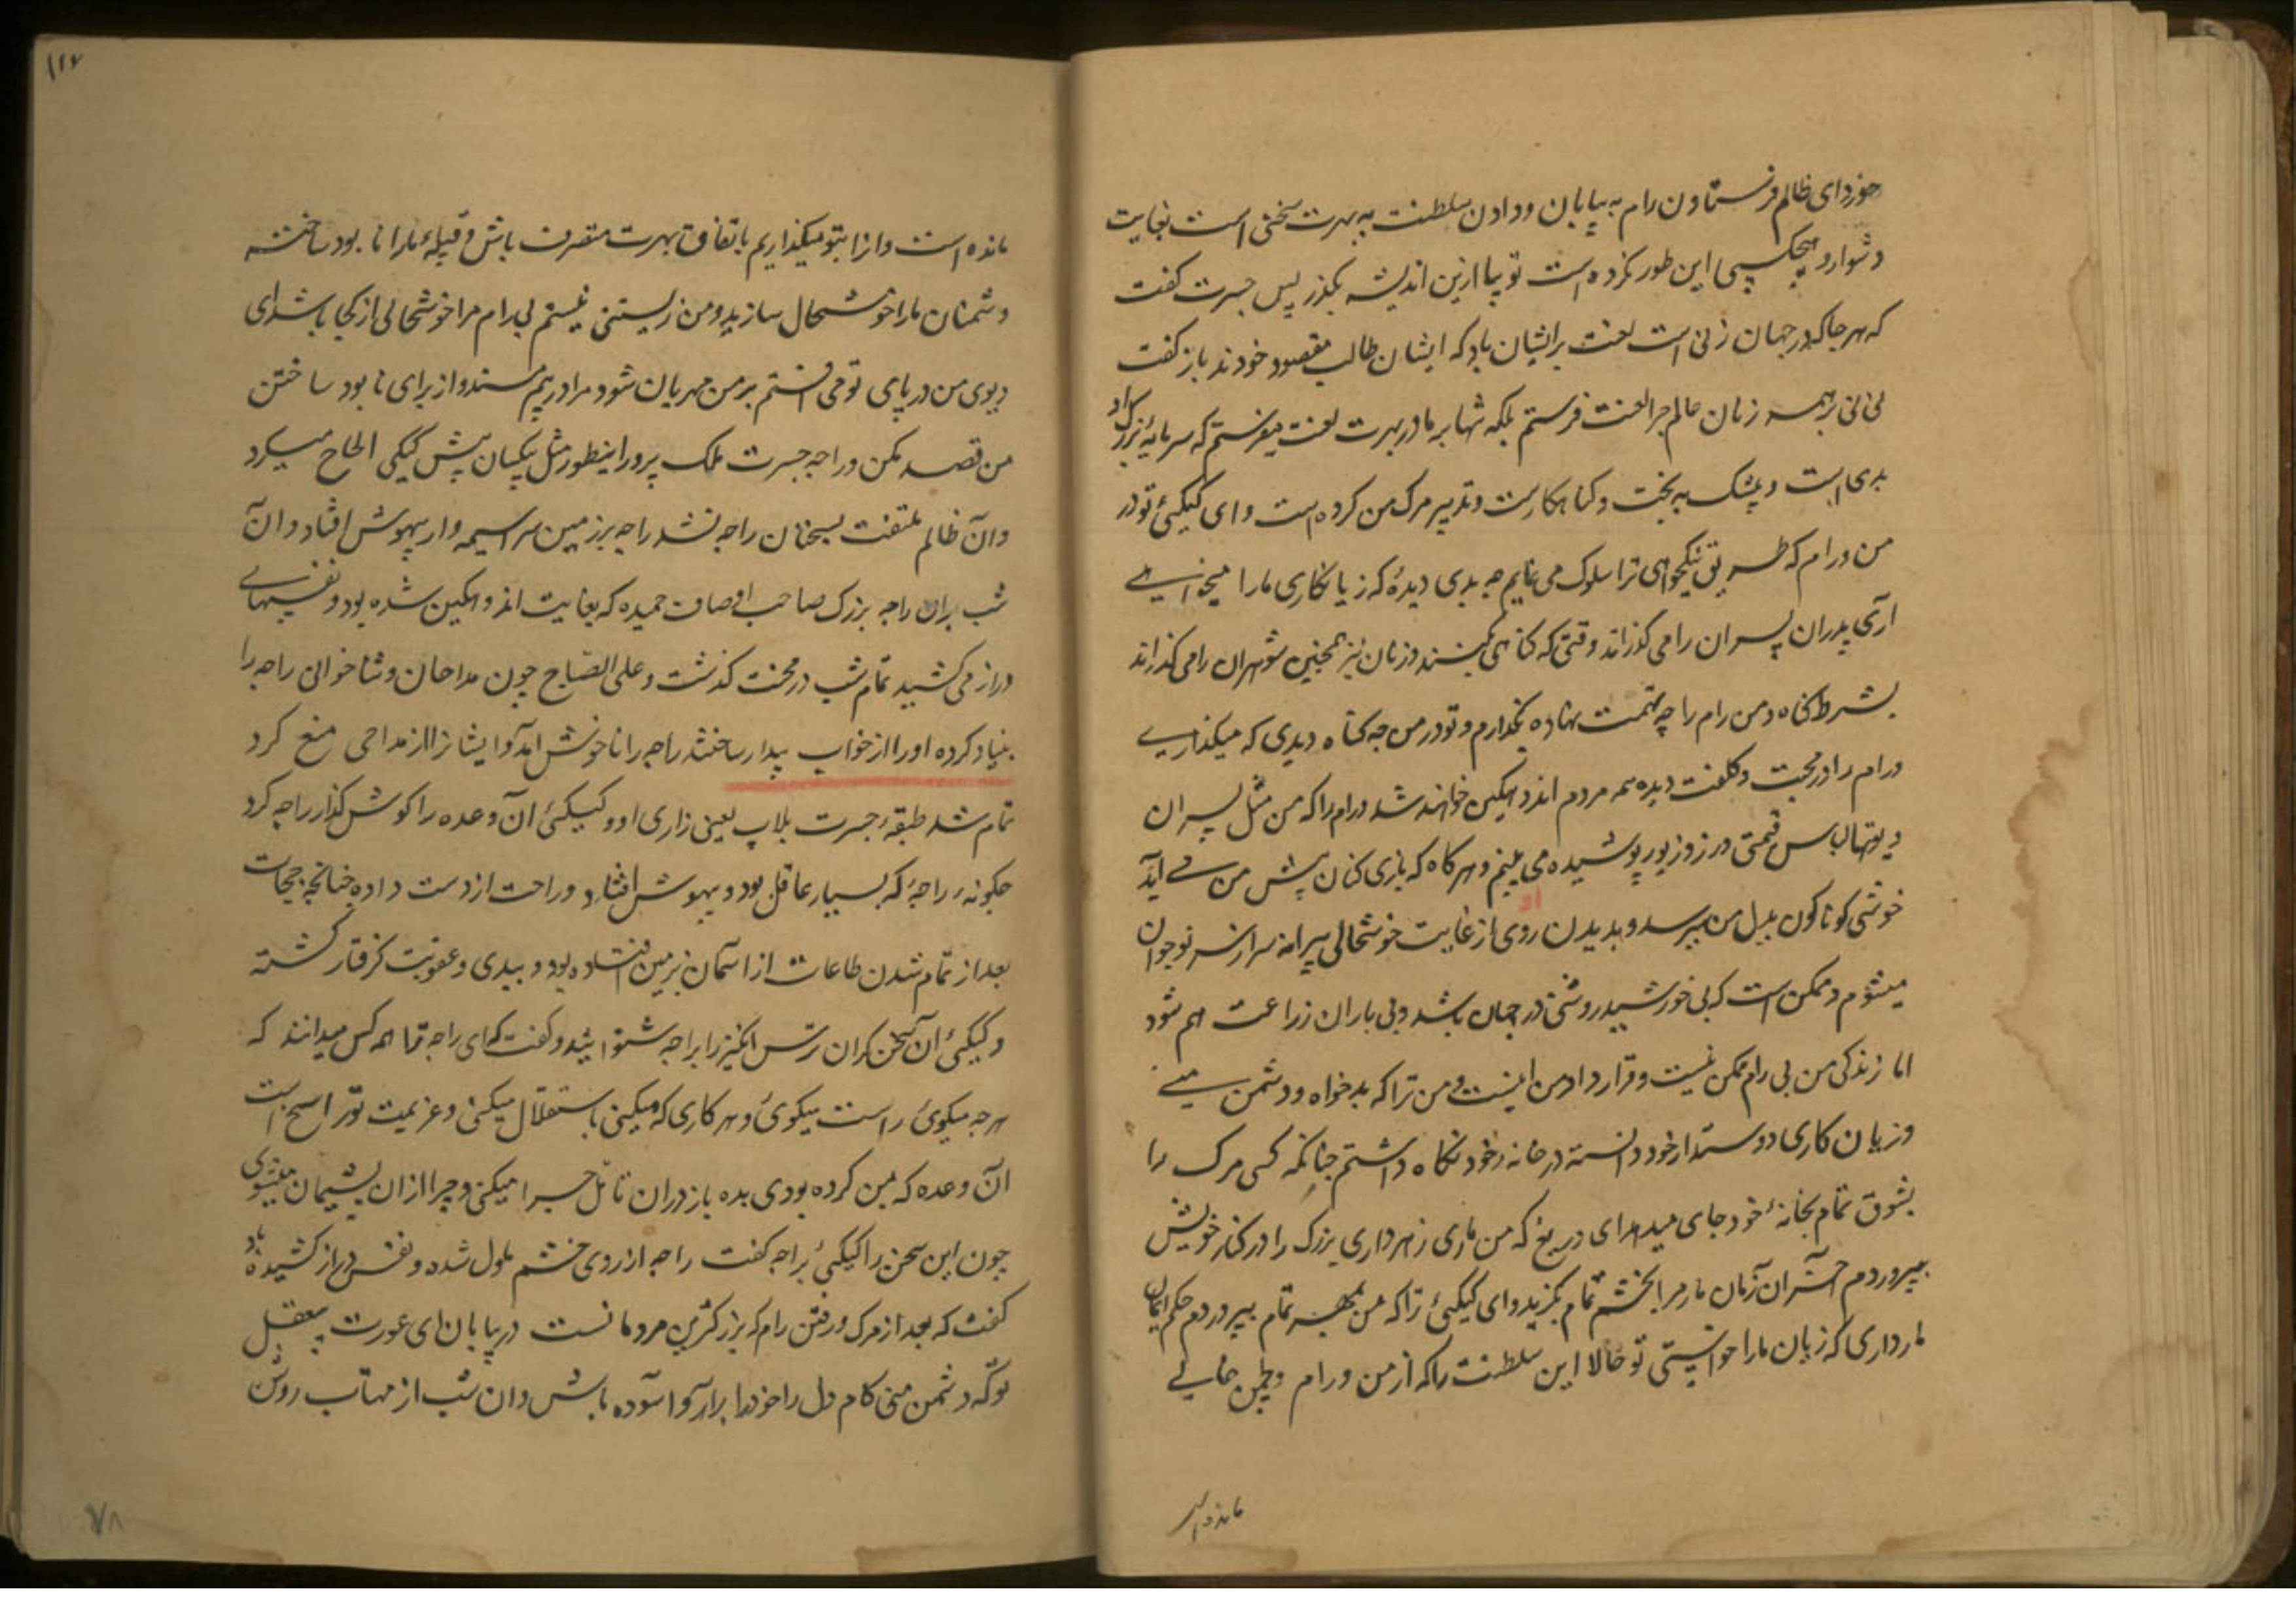 خورد ای ظالم فرستادن رام به بیابان و دادن سلطنت به بهرت سختی است بغایت
دشوار و هیچکسی این طور نکرده است تو بیا ازین اندیشه بگذر پس جسرت کفت
که هر جا که در جهان زنی است لعنت برایشان باد که ایشان طالب مقصود خودند باز کفت
نی نی بر همه زنان عالم چرا لعنت فرستم بلکه تنها بر مادر بهرت لعنت میفرستم که سرمایهٔ بزرک او
بدی است و بیشک بد بخت و کناهکارست و تدبیر مرک من کرده است وای کیکیئ تو در
من و رام که طریق نیکخواهی ترا سلوک می نمایم چه بدی دیدهٔ که زیانکاری ما را میخواهی
آری پدران پسران را می کذرانند وقتی که کناهی کنند و زنان نیز همچنین شوهران را می کذرانند
بشرط کناه و من رام را چه تهمت نهاده بکذارم و تو در من چه کناه دیدی که میکذاری
و رام را در محبت و کلفت دیده همه مردم اندوهکین خواهند شد و رام را که من مثل پسران
دیوتها لباس قیمتی و زر و زیور پوشیده می بینم و هر کاه که بازی کنان پیش من می آید
خوشی کوناکون بدل من میرسد و بدیدن روی او از غایت خوشحالی پیرانه سر از سر نو جوان
میشوم و ممکن است که بی خورشید روشنی در جهان باشد و بی باران زراعت هم شود
اما زندکی من بی رام ممکن نیست و قرارداد من اینست و من ترا که بدخواه و دشمن منی
و زیان کاری دوستدار خود دانسته در خانهٔ خود نکاه داشتم چنانکه کسی مرک را
بشوق تمام بخانهٔ خود جای میدهد ای دریغ که من ماری زهرداری بزرک را در کنار خویش
بپروردم آخر آن زمان مار مرا بخشم تمام بکزید و ای کیکیئ ترا که من بمهر تمام بپروردم حکم همان
مار داری که زیان ما را خواستی تو حالا این سلطنت را که از من و رام و لچمن خالی
مانده است
۱۱۷
مانده است و انرا بتو میکذاریم باتفاق بهرت متصرف باش و قبیلهٔ ما را نابود ساخته
دشمنان ما را خوشحال سازید و من زیستنی نیستم بی رام مرا خوشحالی از کجا باشد ای
دیوی من در پای تو می افتم بر من مهربان شو و مرا درهم مشکن و از برای نابود ساختن
من قصد مکن و راجه جسرت ملک پرور اینطور مثل بیکسان پیش کیکیئ الحاح میکرد
و آن ظالم ملتفت بسخنان راجه نشد راجه بر زمین سراسیمه وار بیهوش افتاد و آن
شب بران راجه بزرک صاحب اوصاف حمیده که بغایت اندوهکین شده بود و نفسهای
دراز می کشید تمام شب در محنت کذشت و علی الصباح چون مداحان و ثنا خوانی راجه را
بنیاد کرده او را از خواب بیدار ساختند راجه را ناخوش آمد و ایشانرا از مداحی منع کرد
تمام شد طبقهٔ جسرت بلاپ یعنی زاری او و کیکیئ آن وعده را کوش کذار راجه کرد
چکونه راجهٔ که بسیار عاقل بود و بیهوش افتاد و راحت از دست داده چنانچه ججات
بعد از تمام شدن طاعات از آسمان بزمین افتاده بود و ببدی و عقوبت کرفتار کشته
و کیکیئ آن سخن کران ترس انکیز را براجه شنوانید و کفت که ای راجه ترا همه کس میدانند که
هر چه میکوئی راست میکوئی و هر کاری که میکنی باستقلال میکنی و عزیمت تو راسخ است
آن وعده که بمن کرده بودی بده باز دران تامل چرا میکنی و چرا ازان پشیمان میشوی
چون این سخن را کیکیئ براجه کفت راجه از روی خشم ملول شده و نفس دراز کشیده باو
کفت که بعد از مرک و رفتن رام که بزرکترین مردمانست در بیابان ای عورت بیعقل
تو که دشمن منی کام دل را خود را برآر و آسوده باش و آن شب از مهتاب روشن
۷۸